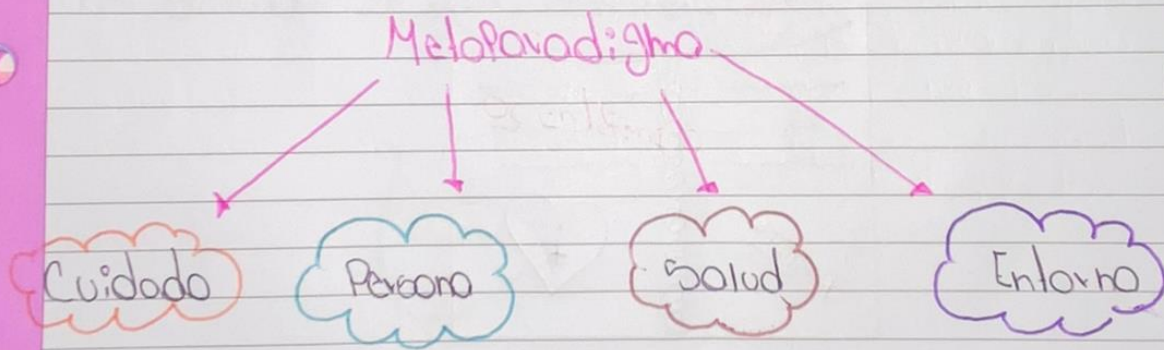 Metaparadigma
Cuidado
Persona
Salud
Entorno